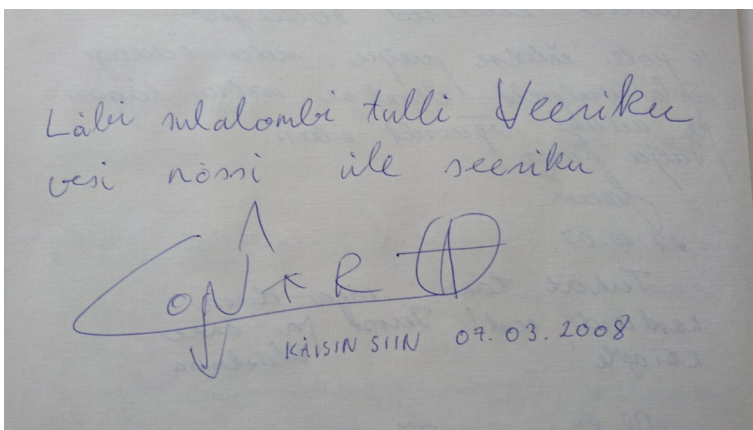 Läbi sulalombi tulli Veeriku
vesi nõssi üle seeriku
CONTRA
KÄISIN SIIN 07.03.2008